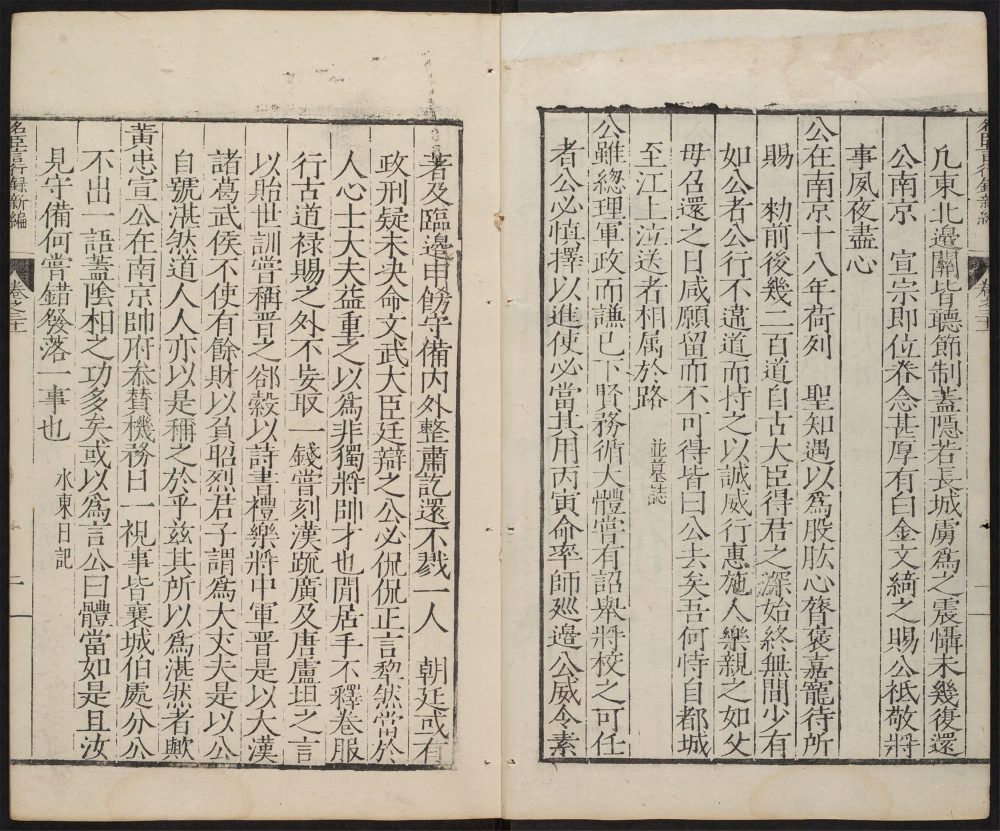 名臣言行錄新編
卷之三
凡東北邊關皆聽節制蓋隱若長城虜爲之震懾未幾復還
公南京　宣宗即位眷念甚厚有白金文綺之賜公祗敬將
事夙夜盡心
公在南京十八年荷列　聖知遇以爲股肱心膂褒嘉寵待所
賜　勑前後幾二百道自古大臣得君之深始終無間少有
如公者公行不違道而持之以誠威行惠施人樂親之如父
母召還之日咸願留而不可得皆曰公去矣吾何恃自都城
至江上泣送者相属於路　並墓誌
公雖總理軍政而謙已下賢務循大體嘗有詔舉將校之可任
者公必慎擇以進使必當其用丙寅命率師廵邊公威令素
著及臨邊申飭守備内外整肅訖還不戮一人　朝廷或有
政刑疑未决命文武大臣廷辯之公必侃侃正言犂然當於
人心士大夫益重之以爲非獨將帥才也閒居手不釋卷服
行古道禄賜之外不妄取一錢嘗刻漢䟽廣及唐盧坦之言
以貽世訓嘗稱晋之郤縠以詩書禮樂將中軍晋是以大漢
諸葛武侯不使有餘財以負昭烈君子謂爲大丈夫是以公
自號湛然道人人亦以是稱之於乎兹其所以爲湛然者歟
黃忠宣公在南京帥府叅賛機務日一視事皆襄城伯處分公
不出一語蓋陰相之功多矣或以爲言公曰體當如是且汝
見守備何嘗錯發落一事也　水東日記
名臣言行錄新編
卷之三
二